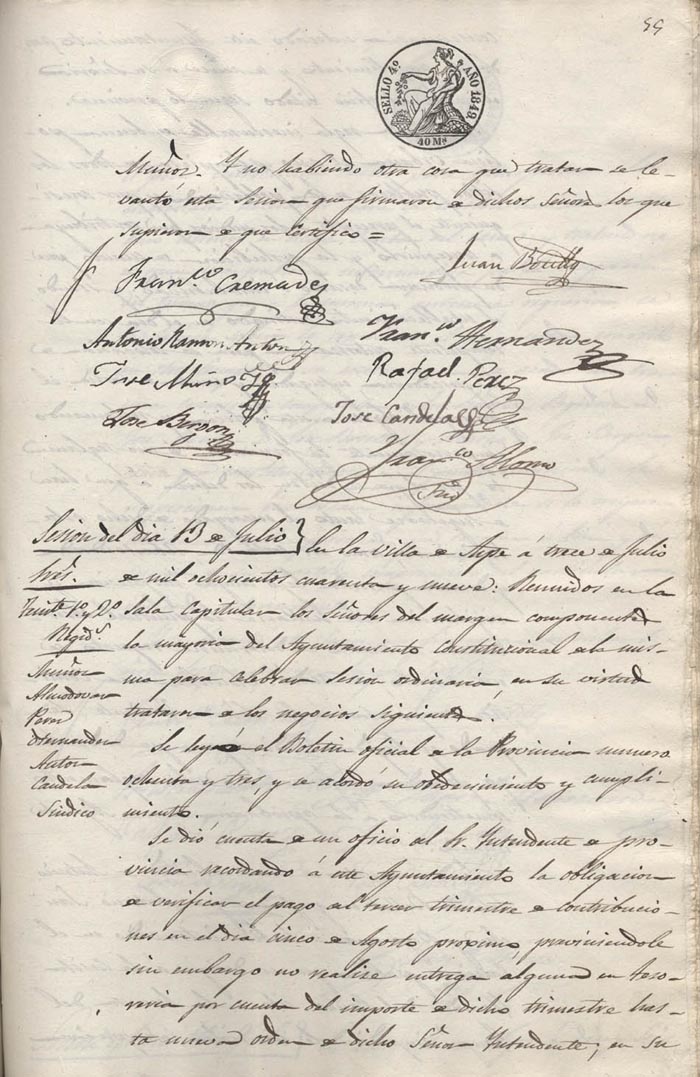 55
SELLO 4º AÑO 1849
40 Ms
Muñoz. Y no habiendo otra cosa que tratar se le-
vantó esta Sesion que firmaron de dichos Señores los que
supieron de que Certifico =
Franco Cremades
Juan Botella
Antonio Ramon Anton
Franco Hernandez
Jose Muñoz
Rafael Perez
Jose
Jose Candela
Franco Alonso
Srio
Sesion del dia 13 de Julio } En la villa de Aspe á trece de Julio
Sres. de mil ochocientos cuarenta y nueve: Reunidos en la
Tente 1º y 2º sala capitular los señores del margen componentes
Regids la mayoria del Ayuntamiento Constitucional de la mis-
Muñoz ma para celebrar sesion ordinaria, en su virtud
Almodovar
Perez trataron de los negocios siguientes.
Hernandez Se leyó el Boletin oficial de la Provincia numero
Anton
Candela ochenta y tres, y se acordó su obedecimiento y cumpli-
Sindico miento.
Se dió cuenta de un oficio del Sr. Intendente de pro-
vincia recordando á este Ayuntamiento la obligacion
de verificar el pago del tercer trimestre de contribucio-
nes en el dia cinco de Agosto proximo, previniendole
sin embargo no realise entrega alguna en teso-
reria por cuenta del importe de dicho trimestre has-
ta nueva orden de dicho Señor Intendente; en su